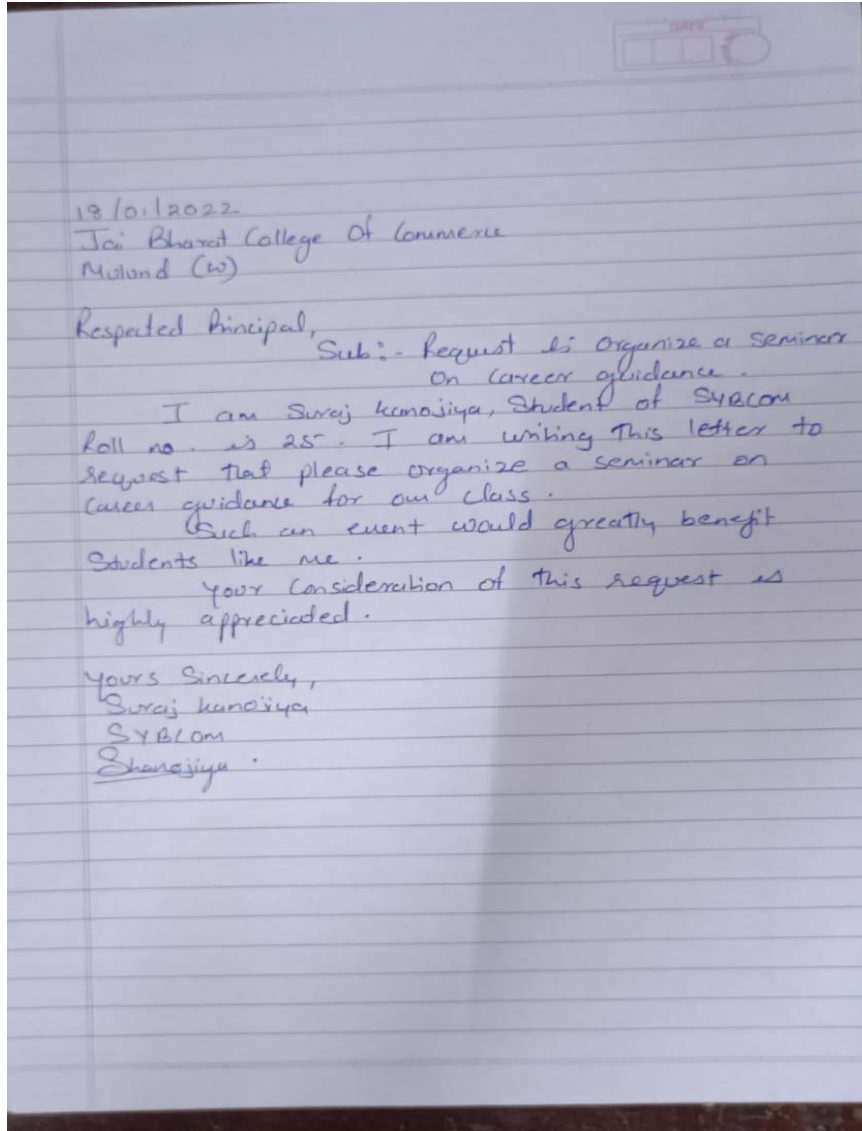 DATE
18/01/2022
Jai Bharat College Of Commerce
Mulund (W)
Respected Principal,
Sub:- Request to Organize a Seminar
On Career guidance.
I am Suraj kanojiya, Student of SYBCOM
Roll no. is 25. I am writing This letter to
request that please organize a seminar on
Career guidance for our class.
Such an event would greatly benefit
Students like me.
Your Consideration of this request is
highly appreciated.
Yours Sincerely,
Suraj kanojiya
SYBCOM
Skanojiya.